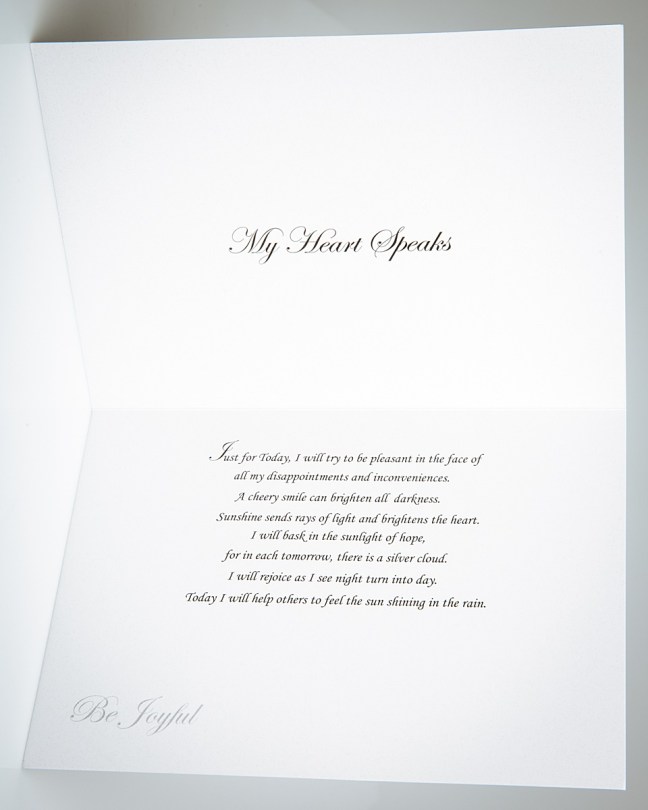 My Heart Speaks
Just for Today, I will try to be pleasant in the face of
all my disappointments and inconveniences.
A cheery smile can brighten all darkness.
Sunshine sends rays of light and brightens the heart.
I will bask in the sunlight of hope,
for in each tomorrow, there is a silver cloud.
I will rejoice as I see night turn into day.
Today I will help others to feel the sun shining in the rain.
Be Joyful